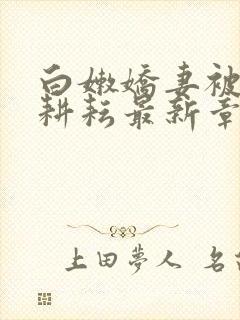 白嫩嬌妻被
耕耘最新章
上田夢人 名